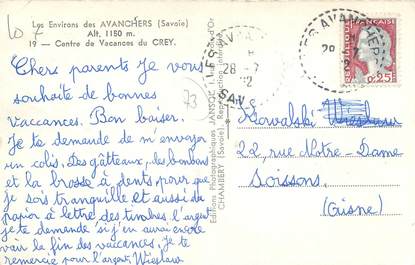 Lo 7
Les Environs des AVANCHERS (Savoie)
Alt. 1150 m.
19 - Centre de Vacances du CREY.
Chers parents Je vous
souhaite de bonnes
vaccances. Bon baiser.
Je te demande de m'envoyer
un colis. Des gâtteaux, des bonbons
et la brosse à dents, pour que
je sois tranquille et aussi du
papier à lettre des timbres l'argent
je te demande si j'en aurai encore
voir la fin des vacances. Je te
remercie pour l'argent. Wieslaw
73
Editions Photographiques JANSOL
CHAMBÉRY (Savoie) - Reproduction interdite
LES AVA
28 - 7
SAV
LES AVANCHERS
28 - 7
REPUBLIQUE FRANÇAISE
0,25
Kowalski Wieslaw
22, rue Notre-Dame
Soissons
(Aisne)